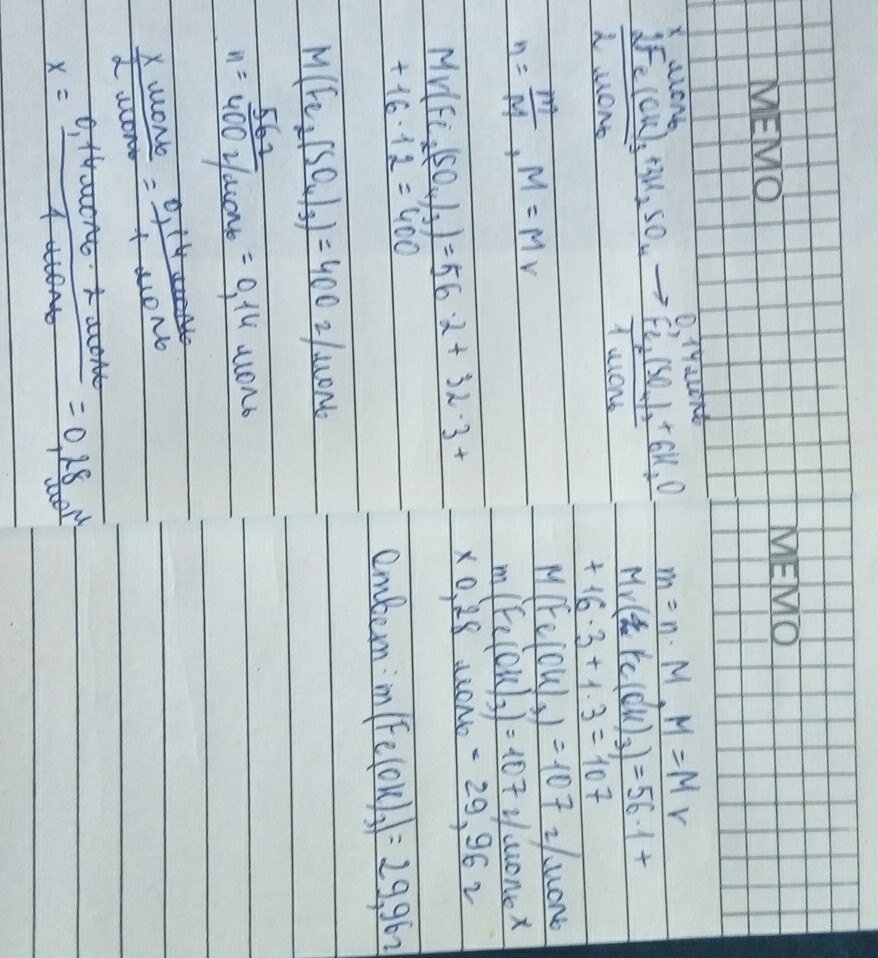 MEMO
x моль 0,14 моль
2Fe(OH)₃+3H₂SO₄ → Fe₂(SO₄)₃+6H₂O
2 моль 1 моль
n = m/M, M = Mr
Mr(Fe₂(SO₄)₃)=56·2+32·3+
+16·12=400
M(Fe₂(SO₄)₃)=400 г/моль
n = 56г/400 г/моль = 0,14 моль
x моль/2 моль = 0,14 моль/1 моль
x = 0,14 моль · 2 моль/1 моль = 0,28 моль
MEMO
m = n · M, M = Mr
Mr(Fe(OH)₃)=56·1+
+16·3+1·3=107
M(Fe(OH)₃)=107 г/моль
m(Fe(OH)₃)=107 г/моль x
x 0,28 моль = 29,96 г
Ответ: m(Fe(OH)₃)=29,96г